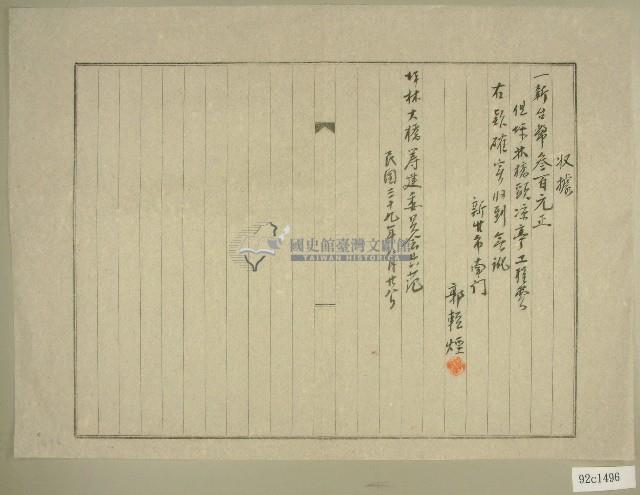 收據
一新台幣叁百元正
但坪林橋頭涼亭工程費
右款確實收到無訛
新竹市南门
郭輕煙
坪林大橋籌建委員会
民國三十九年 月廿八
國史館臺灣文獻館
TAIWAN HISTORICA
92c1496